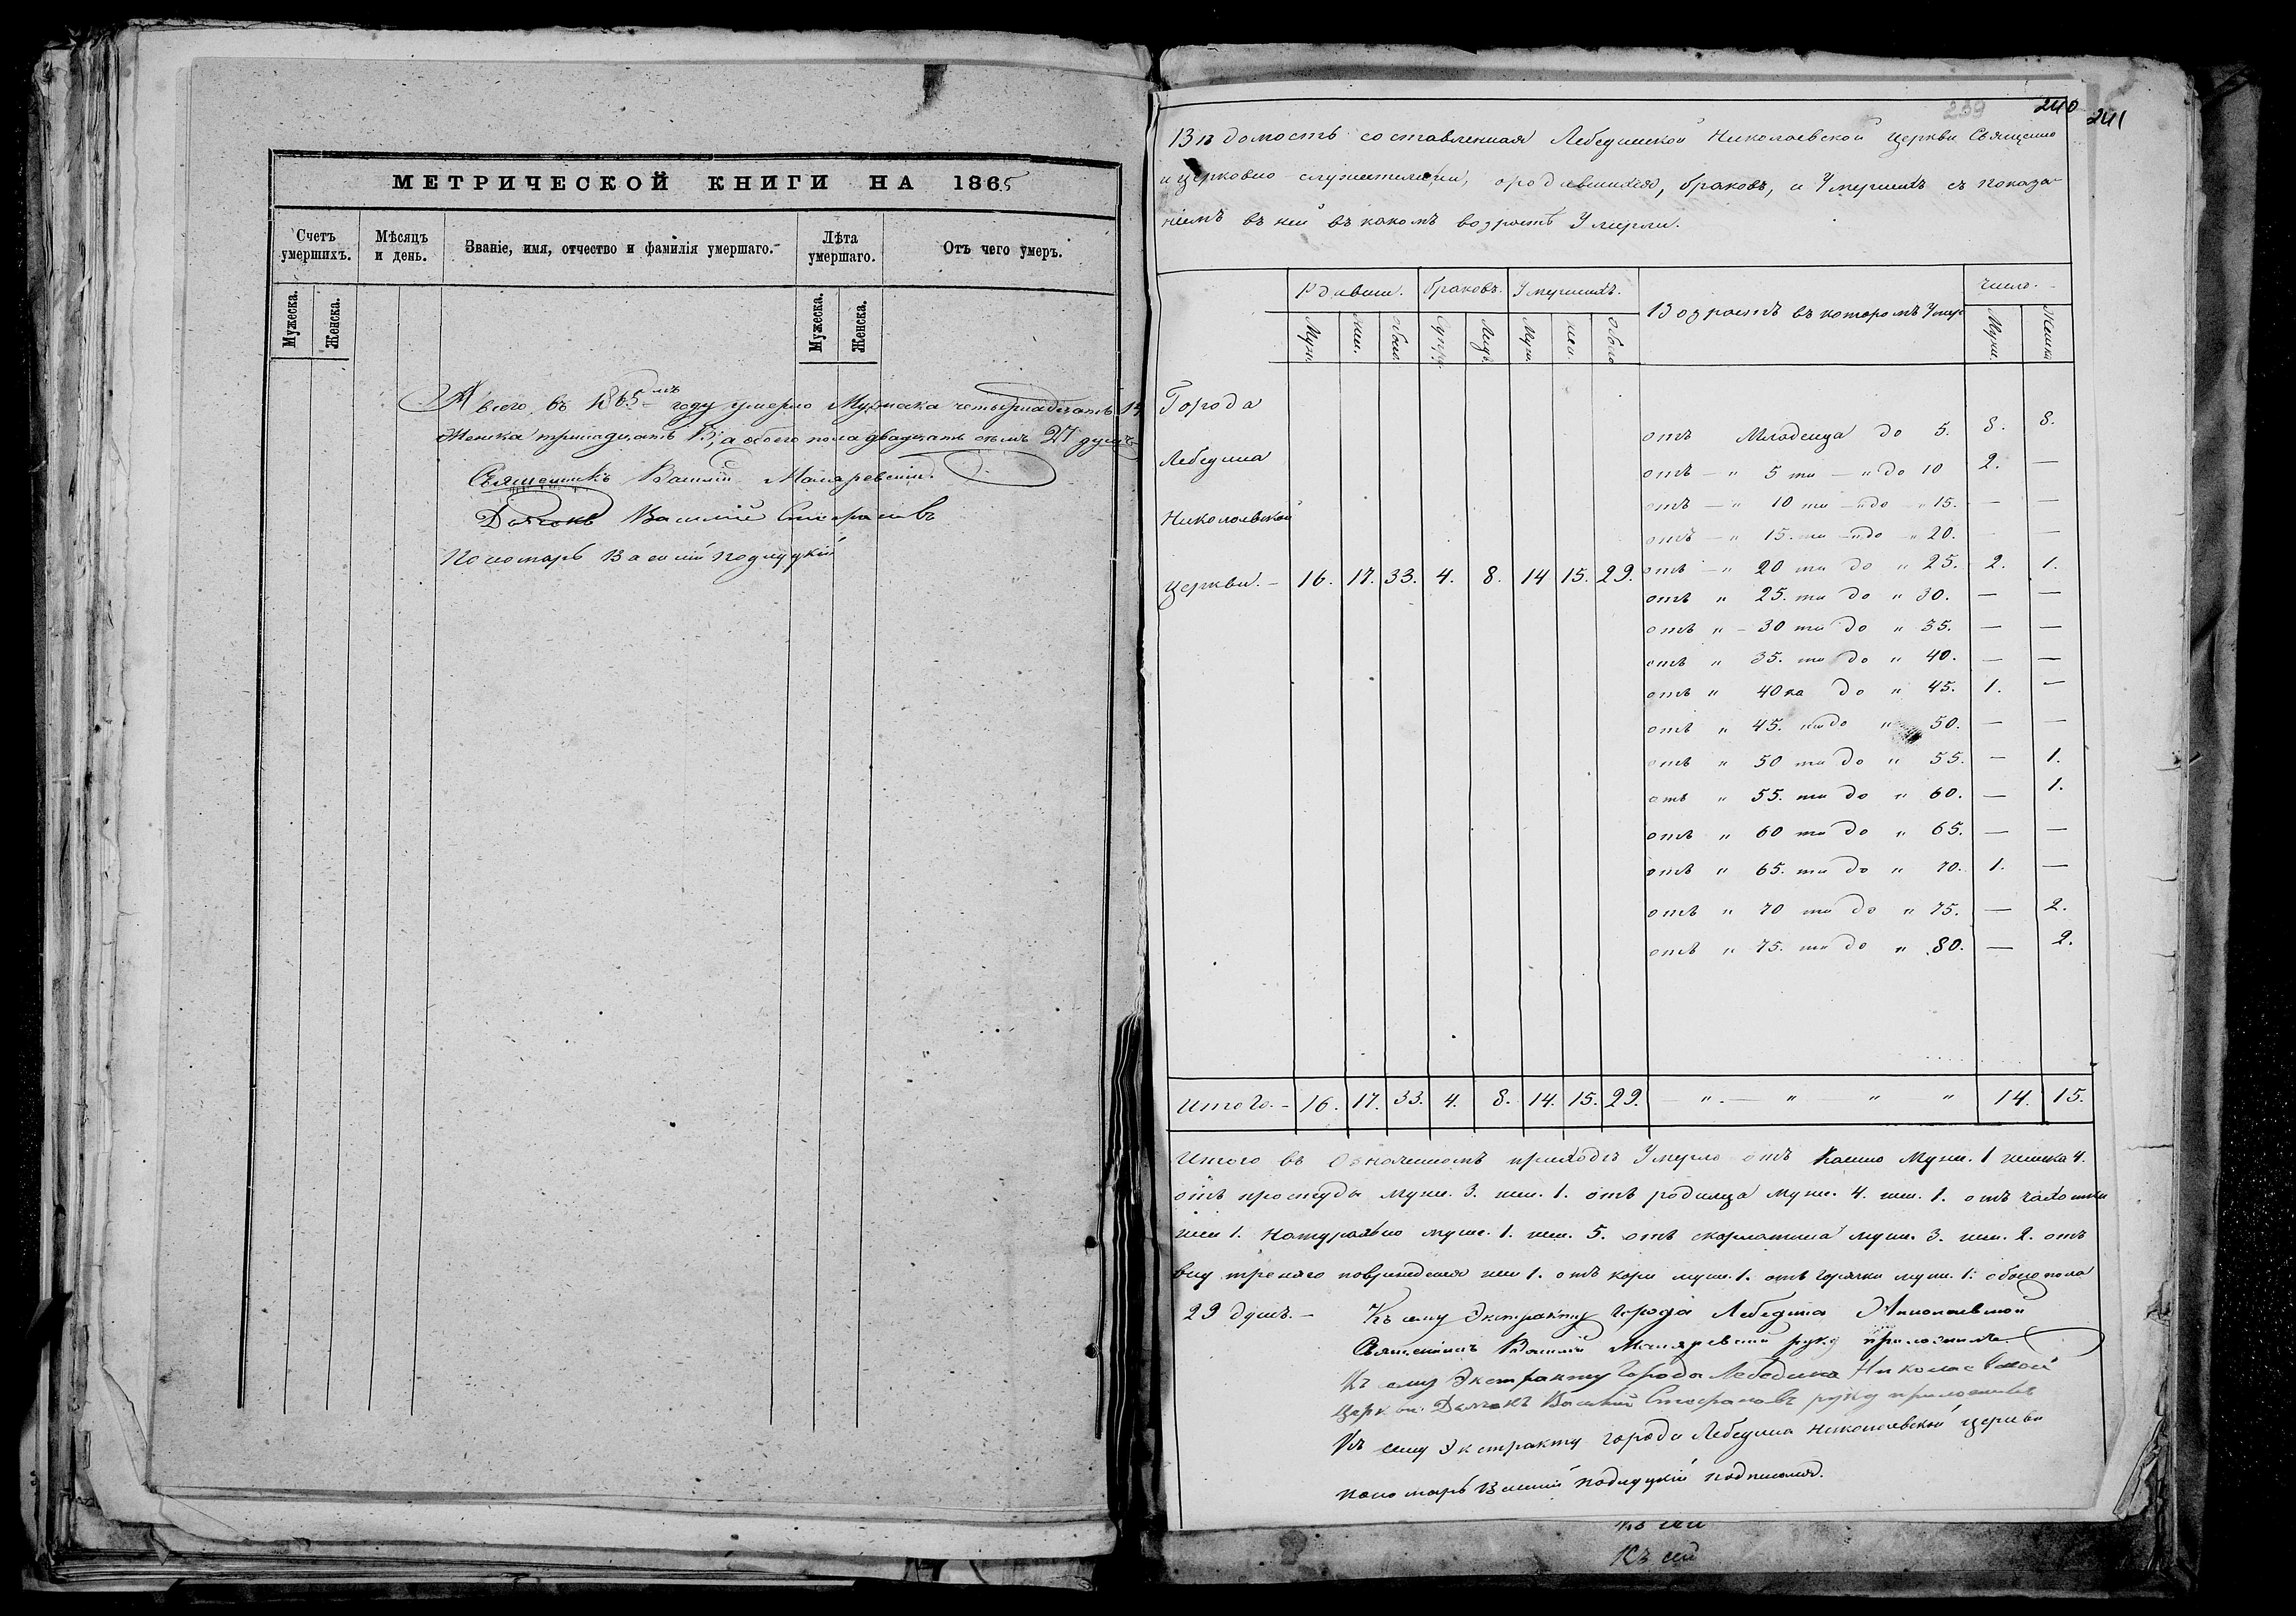 МЕТРИЧЕСКОЙ КНИГИ НА 1865
Счетъ умершихъ. Мѣсяцъ и день. Званіе, имя, отчество и фамилія умершаго. Лѣта умершаго. Отъ чего умеръ.
Мужеска. Женска. Мужеска. Женска.
А всего въ 1865мъ году умерло Мужеска четырнадцать 14
Женска тринадцать 13, а обоего пола двадцать семь 27 душъ
Священникъ Василій
Дьячокъ Василій
Пономарь Василій Подлуцкій
239 240 241
Вѣдомость составленная Лебединской Николаевской церкви Священно
и церковно служителями, о родившихся, браковъ, и Умершихъ съ показа
ніемъ въ ней въ какомъ возрастѣ Умерли.
Рдивши. браковъ. Умершихъ. Возрастъ въ которомъ Умер число.
Муж. жен. обоего. Супр. Лицъ. Муж. жен. обоего Мужи. Женка
Города
Лебедина
Николаевской
Церкви. – 16. 17. 33. 4. 8. 14 15. 29.
отъ Младенца до 5. 8. 8.
отъ — " 5 ти — " до 10 2. —
отъ — " 10 ти — " до — " 15. — —
отъ — " 15. ти — " до — " 20. — —
отъ — " 20 ти до " 25. 2. 1.
отъ " 25. ти до " 30. — —
отъ " – 30 ти до " 35. — —
отъ " 35. ти до " 40. — —
отъ " 40 ка до " 45. 1. —
отъ " 45. ти до " 50. — —
отъ " 50 ти до " 55. — 1.
отъ " 55. ти до " 60. — 1.
отъ " 60 ти до " 65. — —
отъ " 65. ти до " 70. 1. —
отъ " 70 ти до " 75. — 2.
отъ " 75. ти до " 80. — 2.
Итого. – 16. 17. 33. 4. 8. 14. 15. 29. — " . — " " " 14. 15.
Итого въ Означенномъ приходѣ Умерло отъ Кашлю Муж. 1 женска 4.
отъ простуды муж. 3. жен. 1. отъ родимца муж. 4. жен. 1. отъ чахотки
жен 1. Натурально муж. 1. жен. 5. отъ скарлатина муж. 3. жен. 2. отъ
внутреняго поврежденія жен 1. отъ кори муж. 1. отъ горячки муж. 1. обоего пола
29 душъ. – Къ сему Экстракту города Лебедина Николаевской
Священникъ Василій руку приложилъ.
Къ сему Экстракту города Лебедина Николаевской
Церкви Дьячокъ Василій руку приложилъ
Къ сему Экстракту города Лебедина Николаевской церкви
пономарь Василій Подлуцкій подписался.
Къ сей